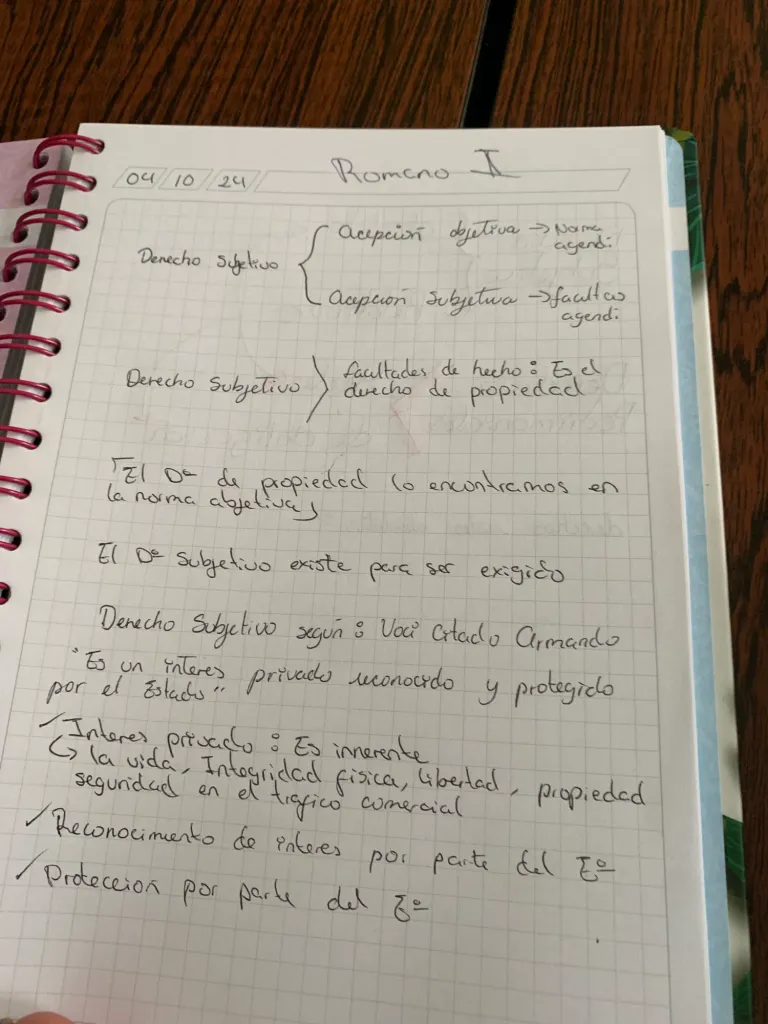 04/10/24
Romano I
Derecho Subjetivo
Acepción objetiva → Norma
agendi
Acepción subjetiva → facultas
agendi
Derecho Subjetivo
facultades de hecho: Es el
derecho de propiedad
"El Dº de propiedad lo encontramos en
la norma objetiva"
El Dº Subjetivo existe para ser exigido
Derecho Subjetivo según: Voci Citado Armando
"Es un interes privado reconocido y protegido
por el Estado"
✓Interes privado: Es innerente
↳ la vida, Integridad física, libertad, propiedad
seguridad en el trafico comercial
✓Reconocimiento de interes por parte del Eº
✓Protección por parte del Eº